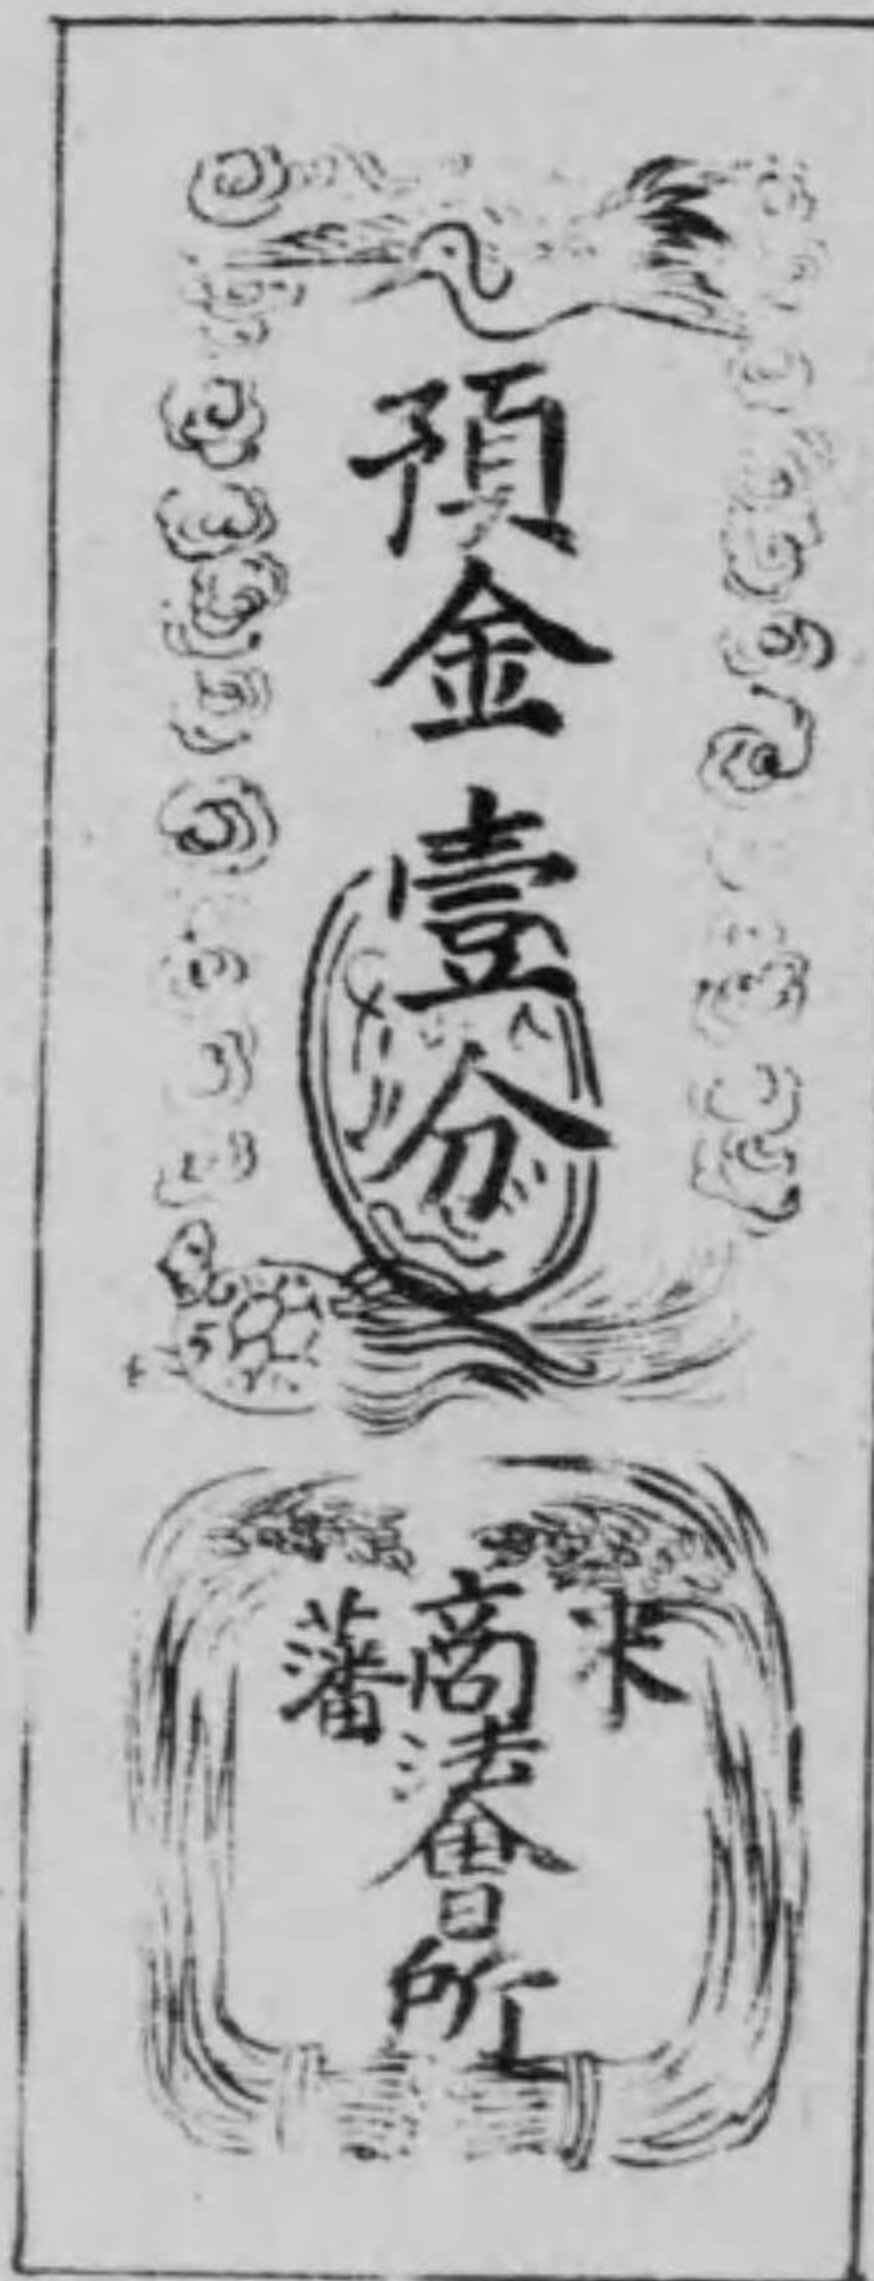 預金壹分
米藩
商法會所